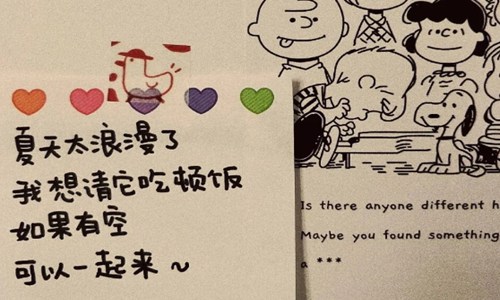 夏天太浪漫了
我想请它吃顿饭
如果有空
可以一起来～
Is there anyone different h
Maybe you found something
a ***